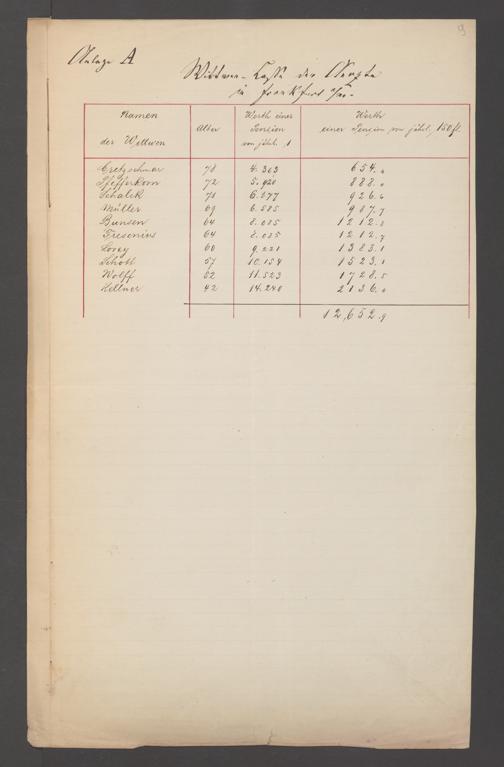 9
Anlage A
Wittwen-Casse der Aerzte
in Frankfurt a/m.
Namen der Wittwen | Alter | Werth einer Pension von jährl. 1 | Werth einer Pension von jährl. 150 fl.
Cretzschmar 78 4.363 654.
Pfefferkorn 72 5.920 888.0
Schalck 71 6.177 926.6
Müller 69 6.585 987.7
Bunsen 64 8.085 1212.8
Fresenius 64 8.085 1212.7
Lorey 60 9.221 1383.1
Schott 57 10.154 1523.1
Wolff 52 11.523 1728.5
Hellner 42 14.240 2136.0
12,652.9